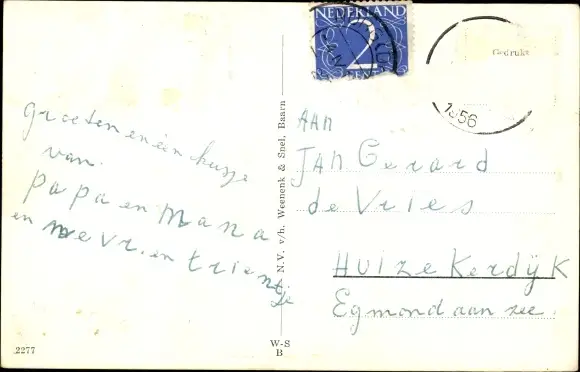 NEDERLAND
2
CENT
Gedrukt
1956
Groeten en één kusje
van.
papa en mama
en mevr. en trientje
N.V. v/h. Weenenk & Snel, Baarn
AAN
JAN Gerard
de Vries
HUIZE Kerdijk
Egmond aan zee.
2277
W-S
B